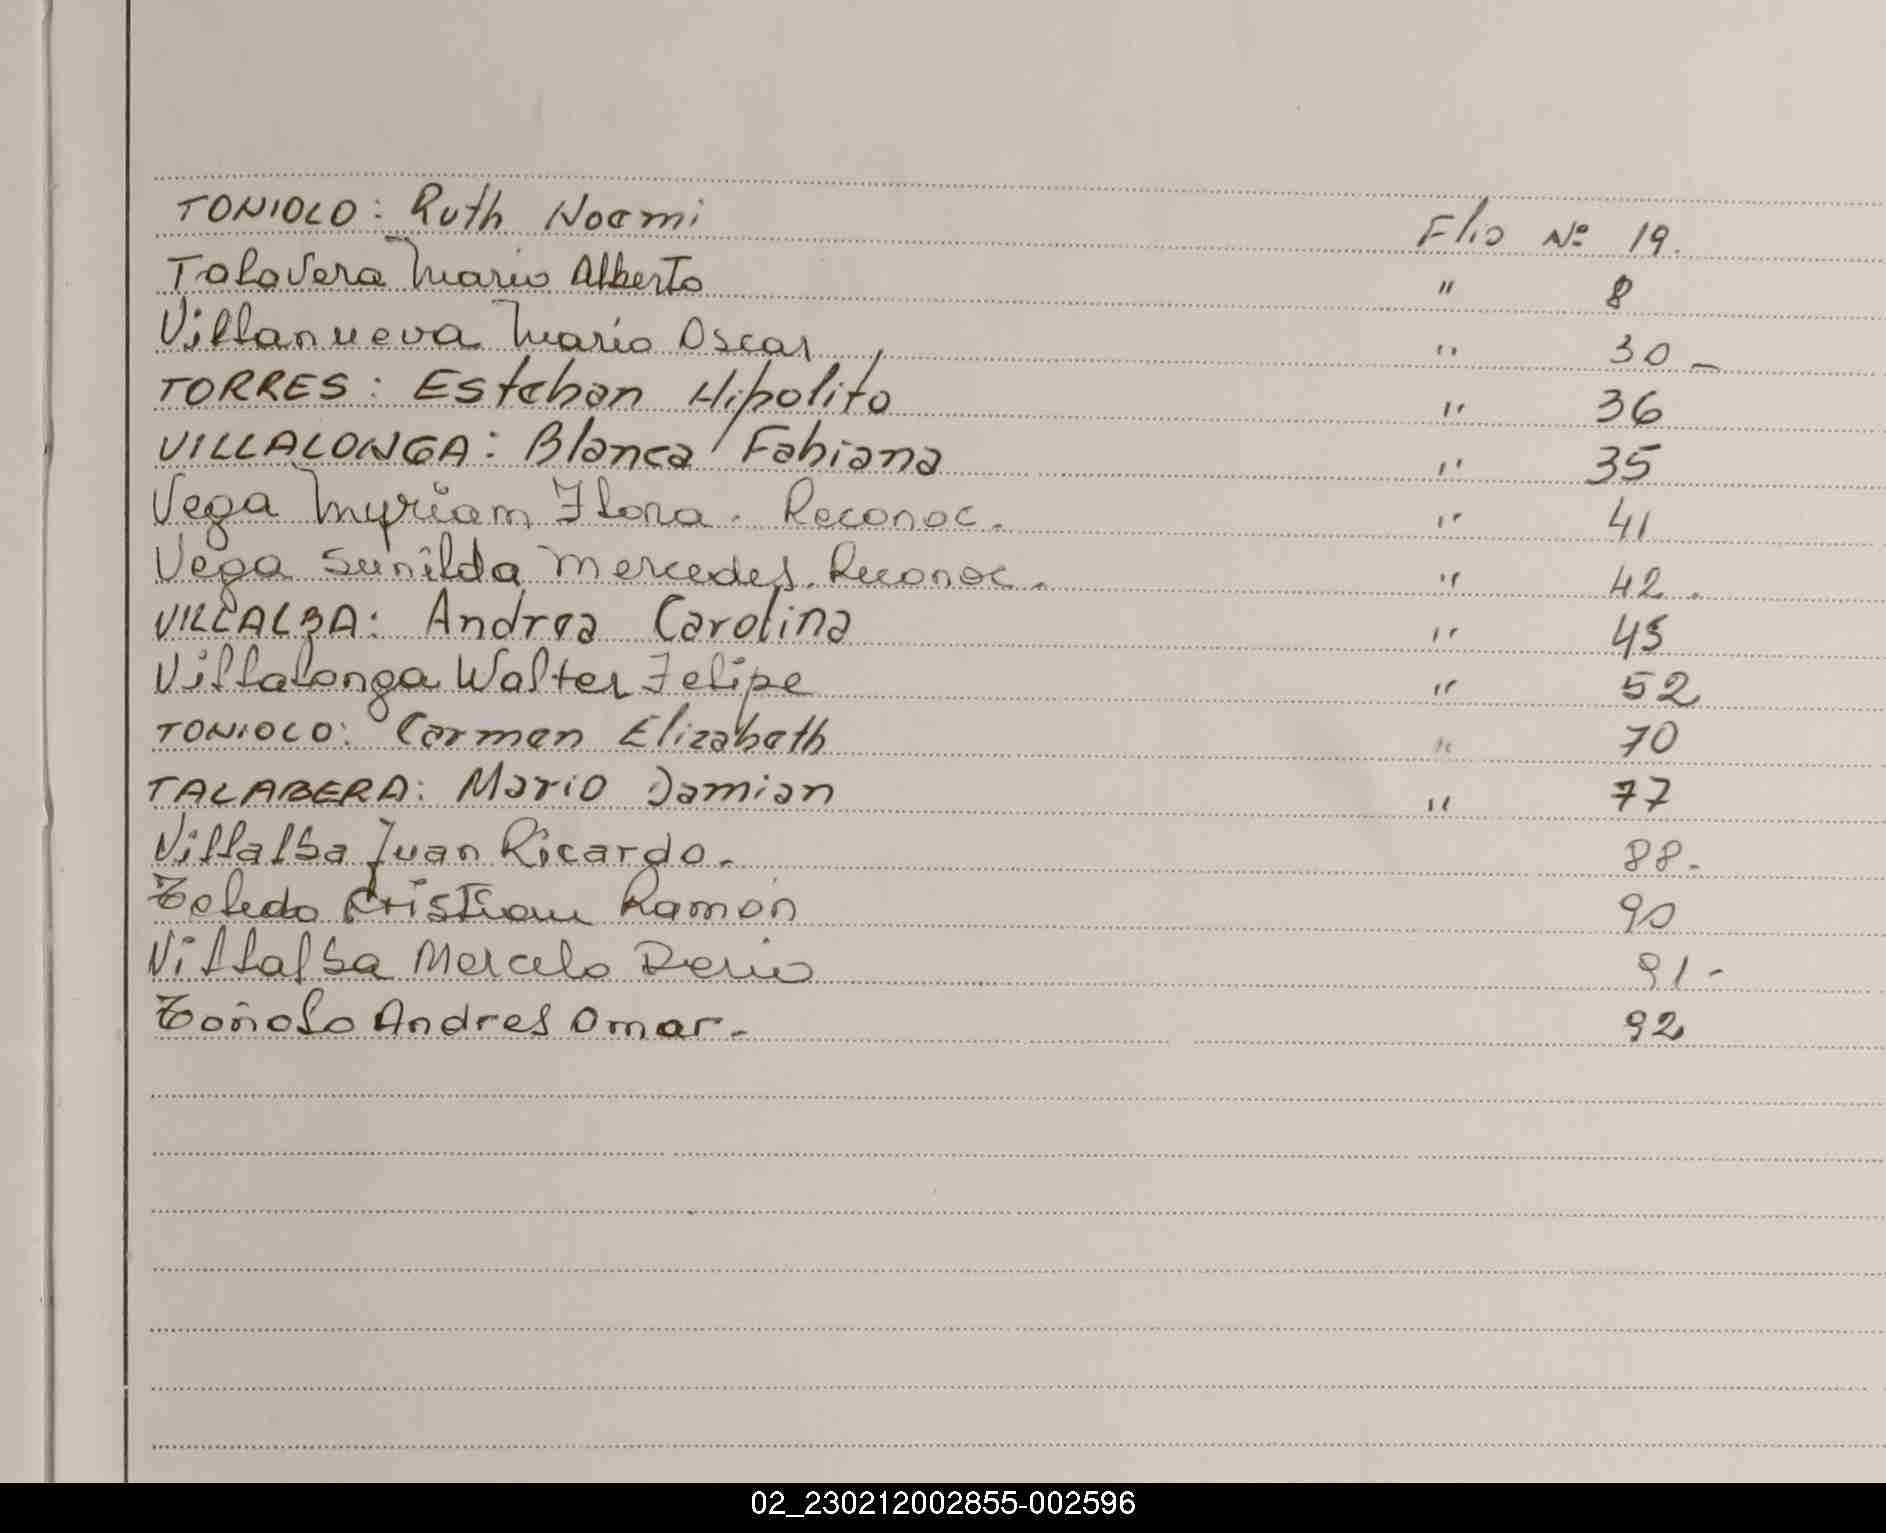 TONIOLO: Ruth Noemi Flio Nº 19.
Talavera Mario Alberto " 8
Villanueva Mario Oscar " 30 -
TORRES: Esteban Hipólito " 36
VILLALONGA: Blanca Fabiana " 35
Vega Myriam Flora. Reconoc. " 41
Vega Sunilda Mercedes. Reconoc. " 42.
VILLALBA: Andrea Carolina " 45
Villalonga Walter Felipe " 52
TONIOLO: Carmen Elizabeth " 70
TALABERA: Mario Damian " 77
Villalba Juan Ricardo. 88.
Toledo Cristian Ramón 90
Villalba Marcelo Dario 91-
Toñolo Andres Omar. 92
02_230212002855-002596